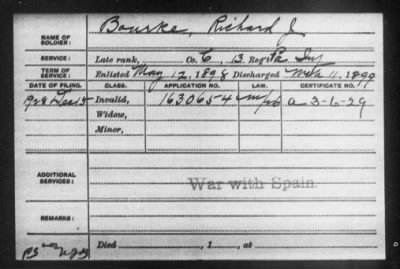 NAME OF SOLDIER: Bourke, Richard J
SERVICE: Late rank, Co. C, 13 Reg't Pa Inf
TERM OF SERVICE: Enlisted May 12, 1898 Discharged Mch 11, 1899
DATE OF FILING. CLASS. APPLICATION NO. LAW. CERTIFICATE NO.
Invalid, 1630654 a 3-6-29
Widow,
Minor,
ADDITIONAL SERVICES:
War with Spain.
REMARKS:
Died , 1 , at